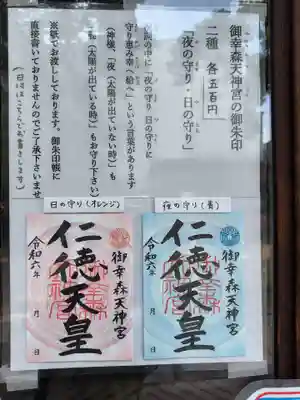 御幸森天神宮の御朱印
二種 各五百円
「夜の守り・日の守り」
祝詞の中に「夜の守り 日の守りに
守り恵み幸へ給へ」という言葉があります
(神様、「夜(太陽が出ていない時)」も
「日(太陽が出ている時)」もお守り下さい)
※紙でお渡ししております。御朱印帳に
直接書いておりませんのでご了承下さいませ
(日付はこちらでお書きします)
日の守り(オレンジ)
御幸森天神宮
仁徳天皇
令和六年 月 日
夜の守り(青)
御幸森天神宮
仁徳天皇
令和六年 月 日